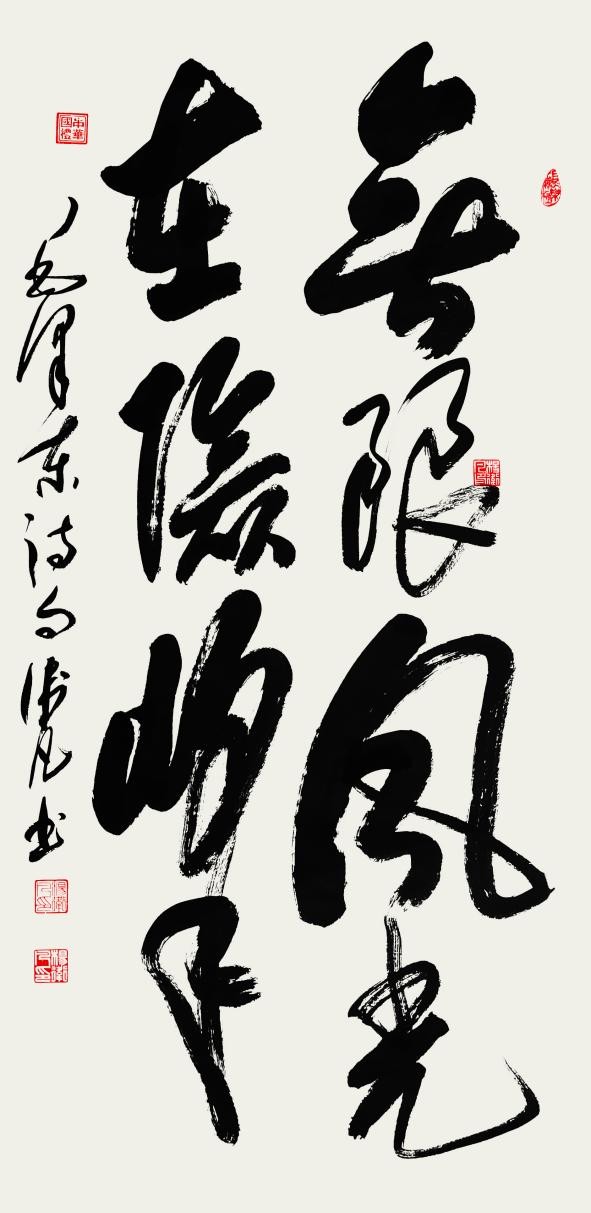 無限風光
在險峰
毛澤東詩句衛凡書
中華國禮